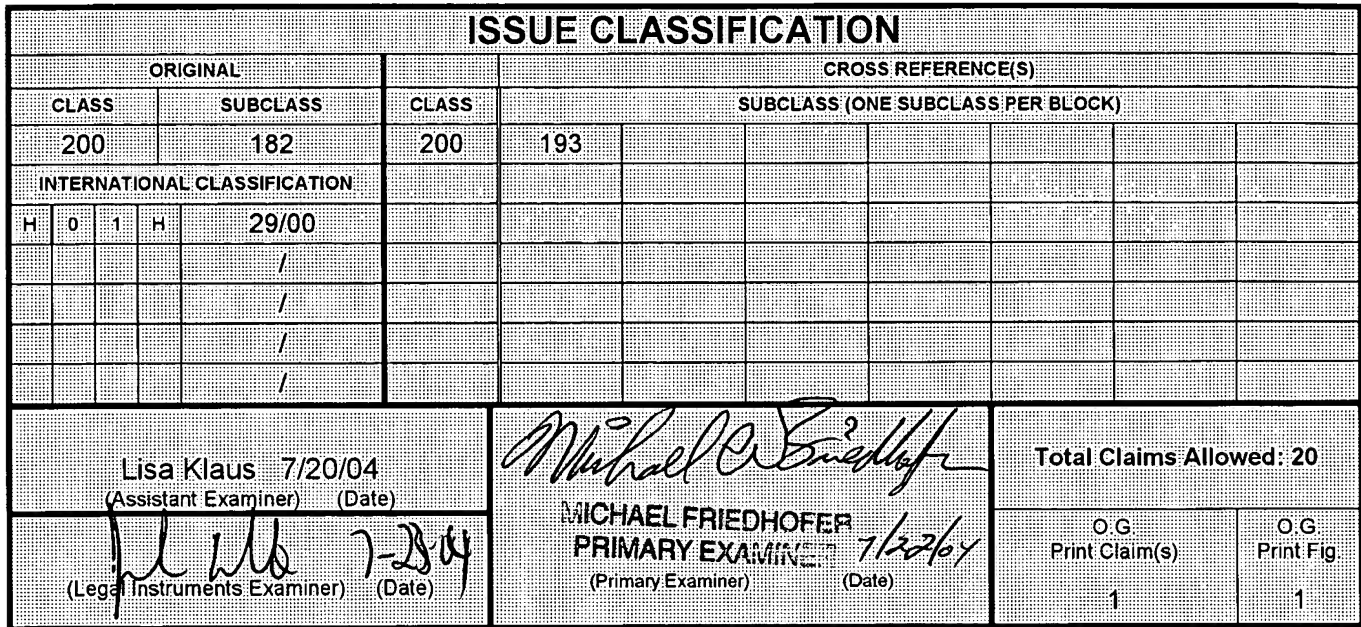 ISSUE CLASSIFICATION
ORIGINAL CROSS REFERENCE(S)
CLASS SUBCLASS CLASS SUBCLASS (ONE SUBCLASS PER BLOCK)
200 182 200 193
INTERNATIONAL CLASSIFICATION
H 0 1 H 29/00
/
/
/
/
Lisa Klaus 7/20/04
(Assistant Examiner) (Date)
7-23-04
(Legal Instruments Examiner) (Date)
MICHAEL FRIEDHOFER
PRIMARY EXAMINER 7/22/04
(Primary Examiner) (Date)
Total Claims Allowed: 20
O.G. Print Claim(s)
1
O.G. Print Fig.
1